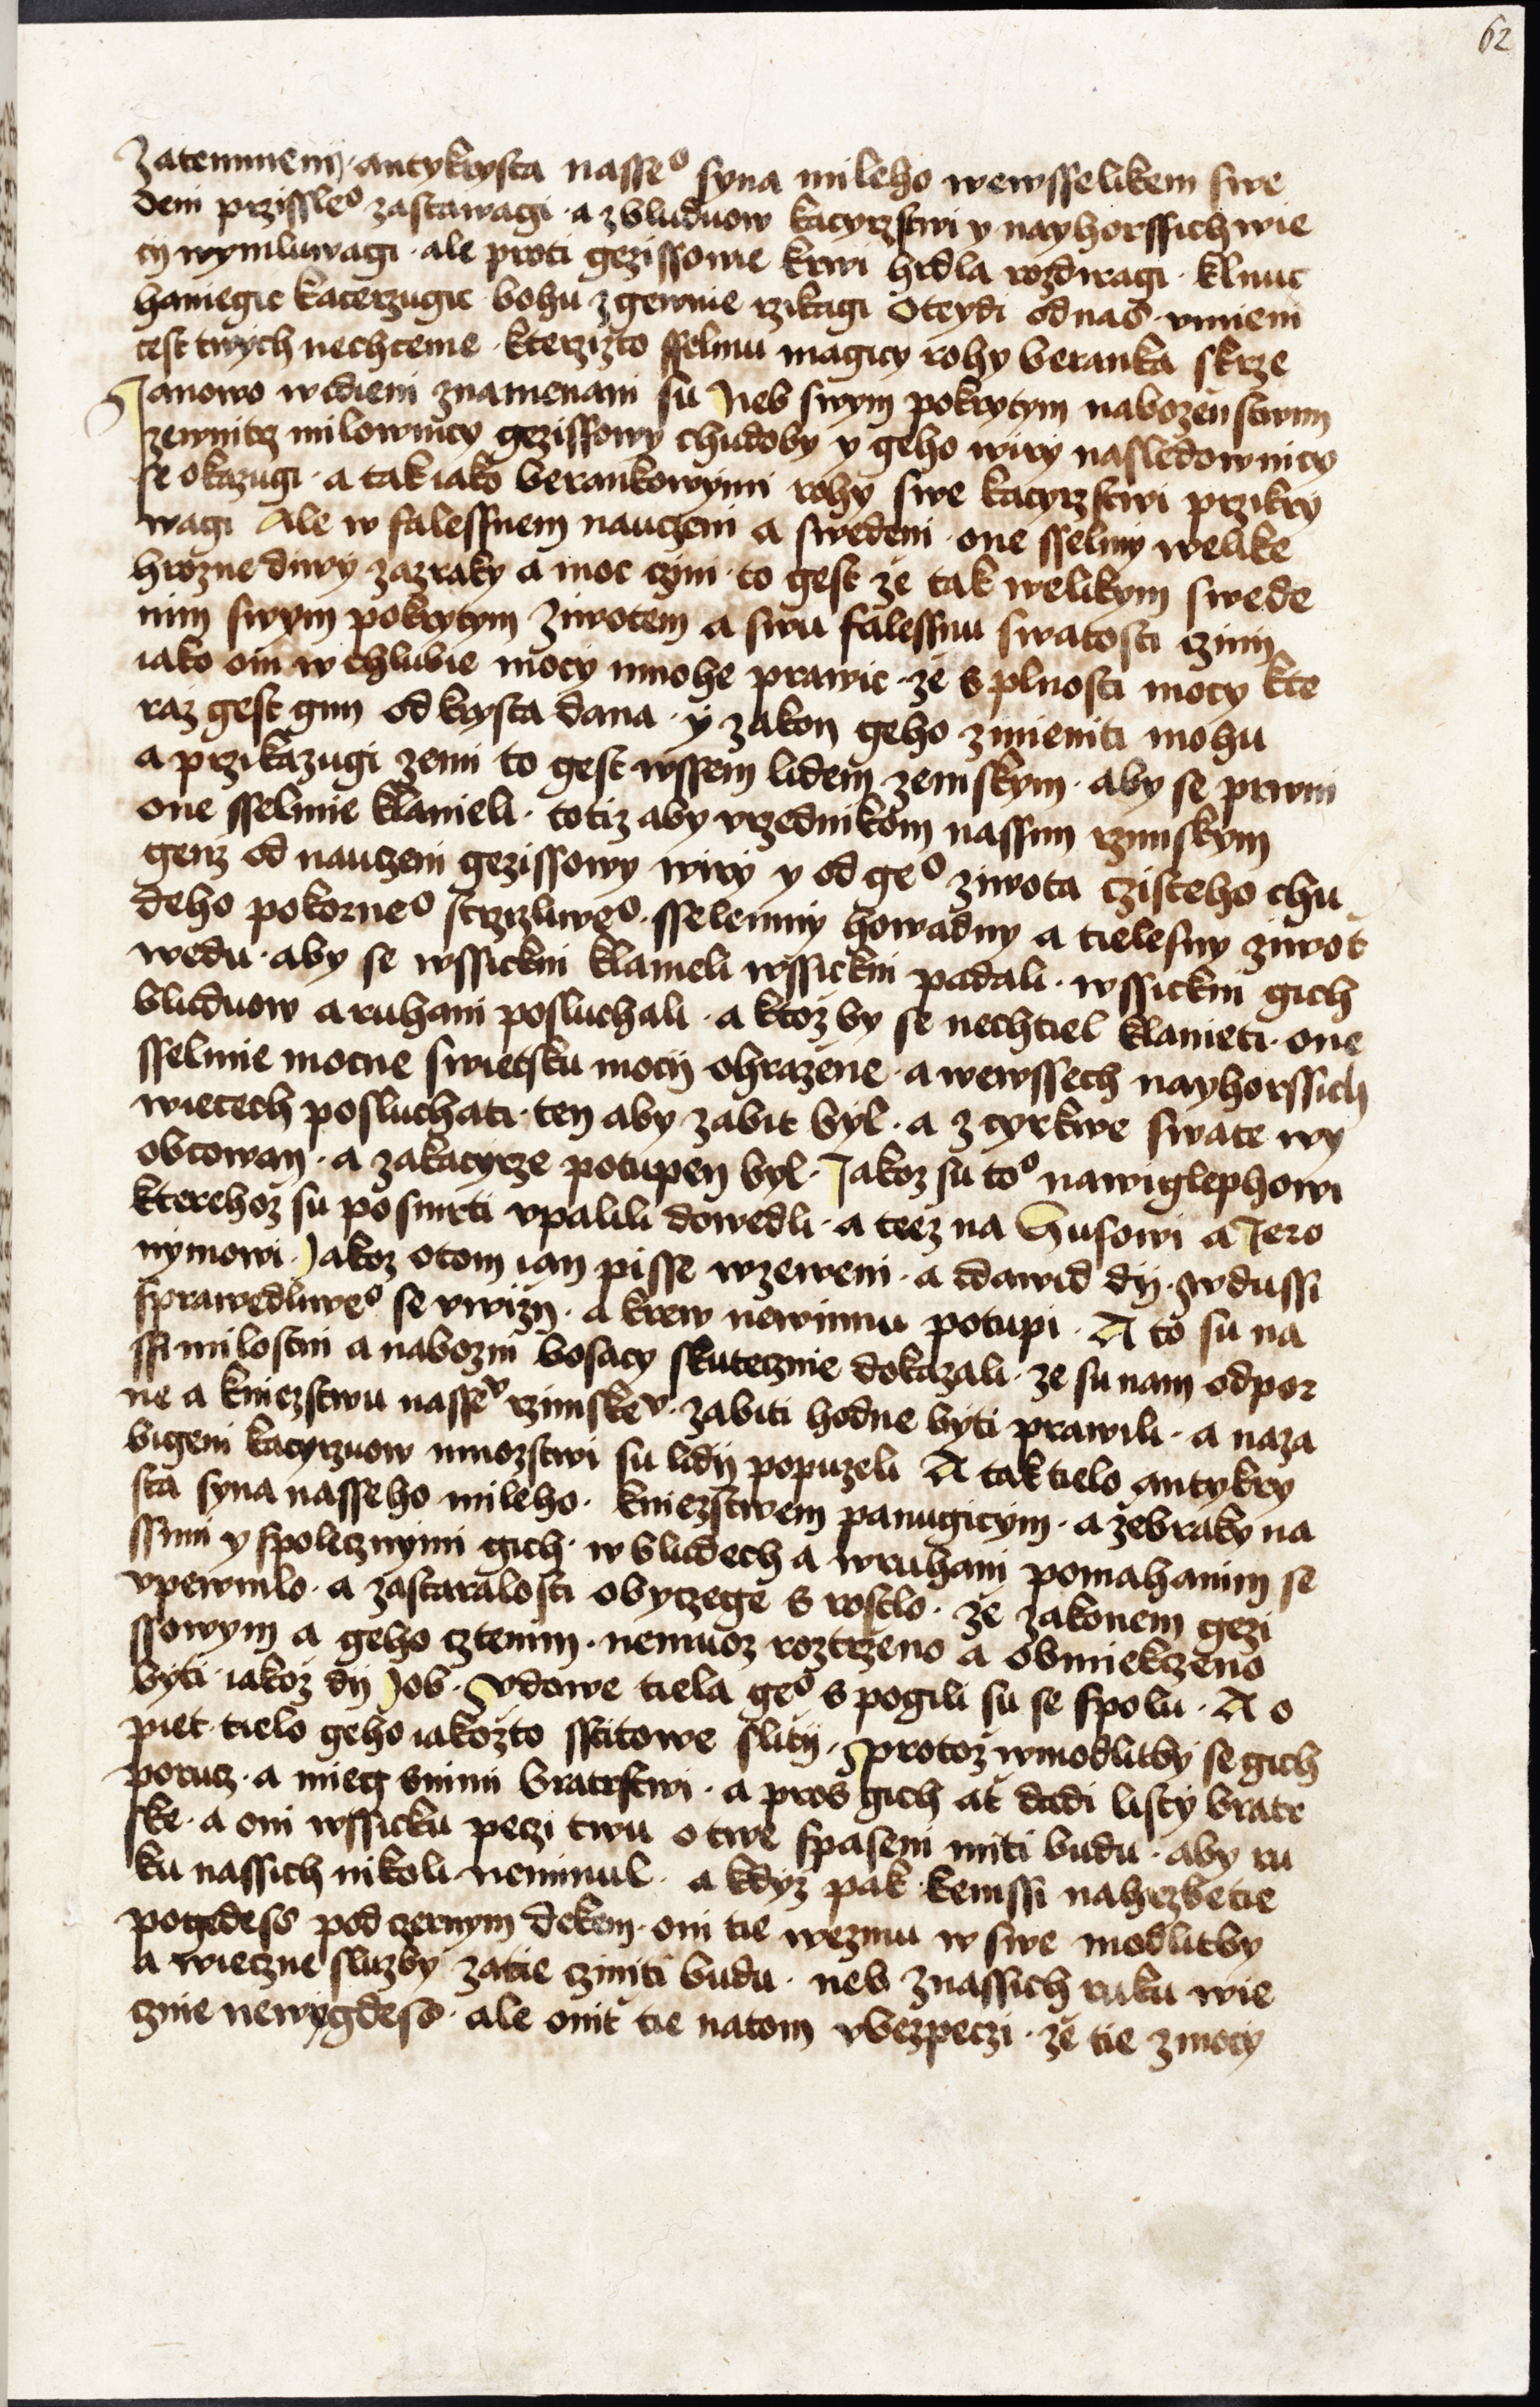 62
Zatemnenij · antykrysta nasse° syna mileho wewsselikem swe
deni przissle° zastawagi · a z bluduow kacyrzstwi y nayhorssich wie
cij wymluwagi · ale proti gezissowie krwi hrdla rozdiragi · klnuc
haniegic kacerzugic bohu zgewnie rzikagi Oteydi od nas · vmieni
cest twych nechceme · kterzizto sselmu magicy rohy beranka skrze
Janowo widieni znamenani su Neb swym pokrytym nabozenstwim
zewnitrz milownicy gezissowy chudoby y geho wiry nasledownicy
se okazugi · a tak iako berankowymi rohy swe kacyrzstwi przikry
wagi Ale w falessnem nauczeni a swedeni · one sselmy welike
hrozne diwy zazraky a moc czini · to gest ze tak welikym swede
nim swym pokrytym ziwotem a swu falessnu swatosti czinij
iako oni w chlubie mocy mnohe prawic · ze s plnosti mocy kte
raz gest gim od krysta dana · y zakon geho zmieniti mohu
a przikazugi zemi to gest wssem lidem zemskym · aby se prwni
one sselmie klanieli · totiz aby vrzednikom nassim rzimskym
genz od nauczeni gezissowy wiry y od ge° ziwota czisteho chu
deho pokorne° strzizliwe° · sselemny howadny a tielesny ziwot
wedu · aby se wssickni klanieli wssickni padali · wssickni gich
bluduow a ruhani posluchali · a ktoz by se nechtiel klanieti · one
sselmie mocne swietsku mocij ohrazene · a wewssech nayhorssich
wiecech posluchati · ten aby zabit byl · a z cyrkwe swate wy
obcowan · a zakacyrze potupen byl · Jakoz su to° nawiglephowi
kterehoz su po smrti vpalili dowedli · a teez na Husowi a Jero
nymowi · Jakoz otom ian pisse wzeweni · a dawid dij · w dussi
sprawedliwe° se vwizij · a krew newinnu potupi · A to su na
ssi milostni a nabozni bosacy skutecznie dokazali · ze su nam odpor
ne a kniezstwu nasseᵛ rzimskeᵛ · zabiti hodne byti prawili · a naza
bigeni kacyrzuow mnozstwi su lidij popuzeli A tak tielo antykry
sta syna nasseho mileho · kniezstwem panugicym · a zebraky na
ssimi y spolecznymi gich · w bludech a wruhani pomahanim se
vpewnilo · a zastaralosti obyczege s rostlo · ze zakonem gezi
ssowym a geho cztenim · nemuoz roztrzeno a obmiekczeno
byti · iakoz dij Job · Vdowe tiela ge° s pogili su se spolu · A o
piet · tielo geho iakozto sscitowe slitij · protoz wmodlitby se gich
porucz · a miegz snimi bratrstwi · a pros gich at dadi listy bratr
ske · a oni wssicku peczi twu o twe spaseni miti budu · aby ru
ku nassich nikoli neminul · a kdyz pak kemssi nahrzbetie
pogedess pod czernym dekem · oni tie wezmu w swe modlitby
a wieczne sluzby zatie cziniti budu · neb znassich ruku wie
cznie newygdess · ale onit tie natom vbezpeczi · ze tie z mocy